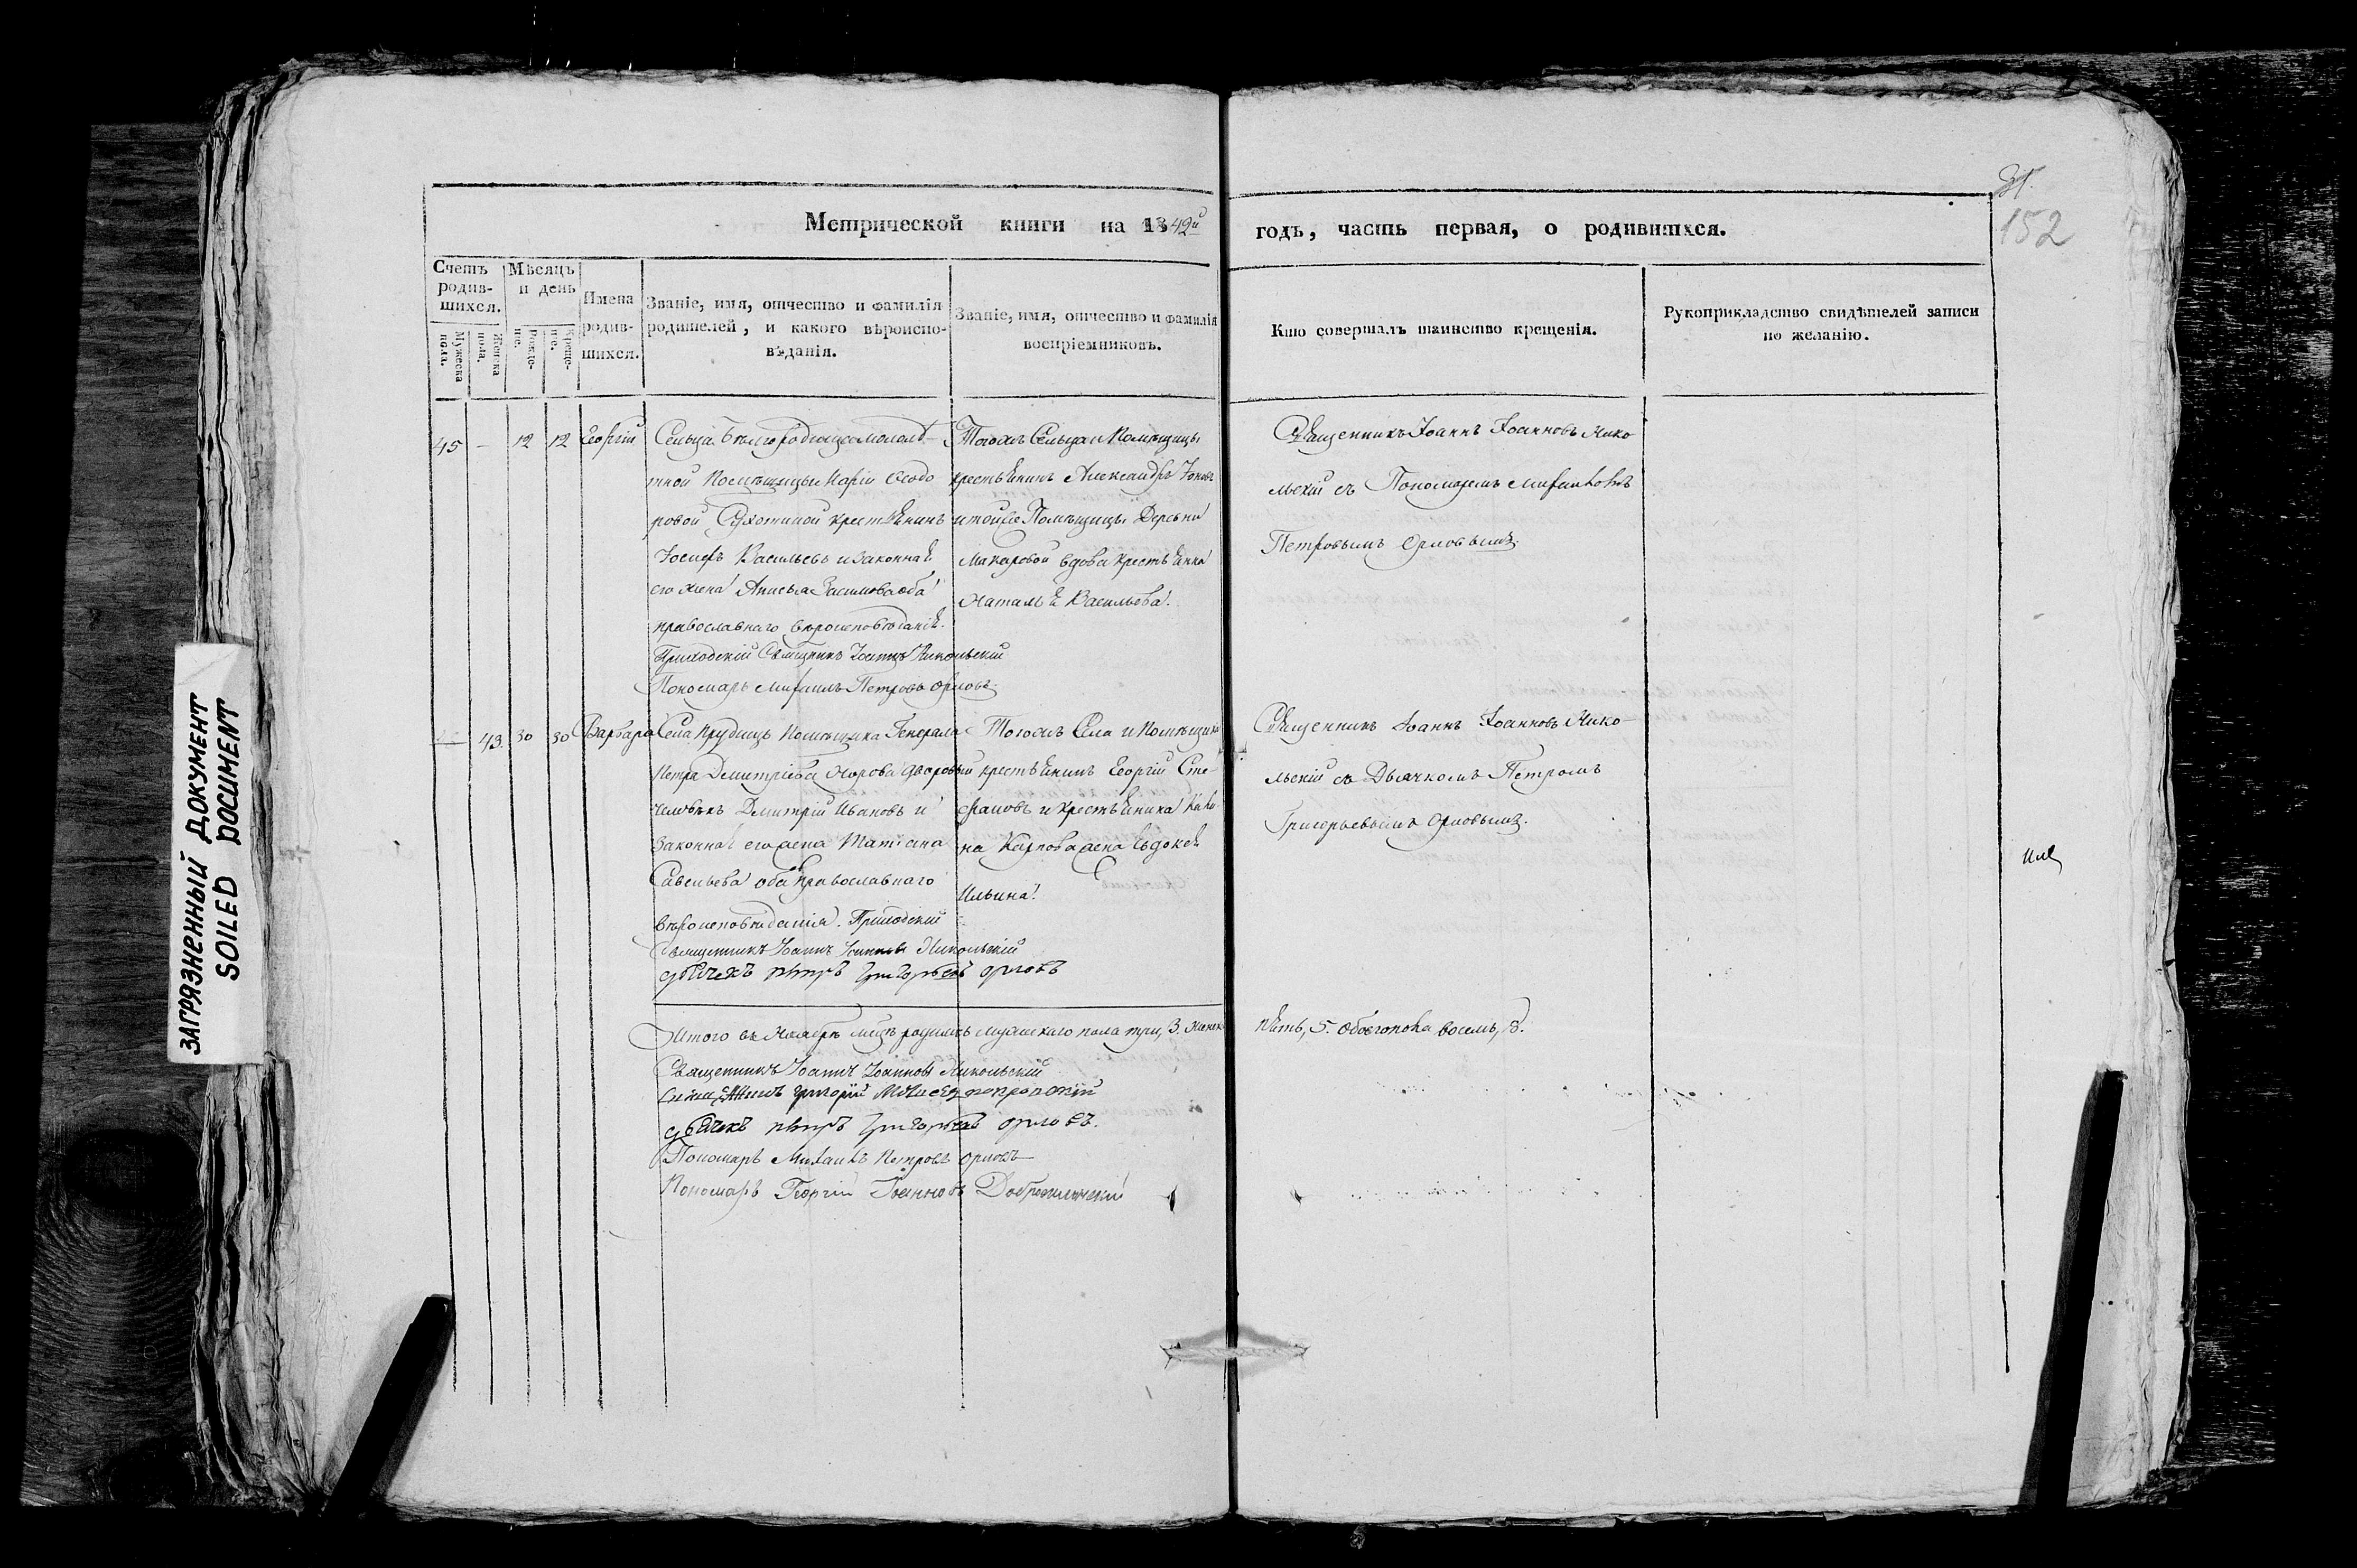 ЗАГРЯЗНЕННЫЙ ДОКУМЕНТ
SOILED DOCUMENT
152
Метрической книги на 1842й
годъ, часть первая, о родившихся.
Счетъ родив-шихся.
Мужеска пола.
Женска пола.
Мѣсяцъ и день
Рожде-ніе.
Креще-ніе.
Имена родив-шихся.
Званіе, имя, отчество и фамилія
родителей, и какого вѣроиспо-
вѣданія.
Званіе, имя, отчество и фамилія
воспріемниковъ.
Кто совершалъ таинство крещенія.
Рукоприкладство свидѣтелей записи
по желанію.
45 — 12 12 Георгій
Сельца
тной Помѣщицы Маріи Ѳеодо
ровой Сухотиной крестьянинъ
Іосифъ Васильевъ и законная
его жена Анисья оба
православнаго вѣроисповѣданія.
Приходскій Священникъ Іоаннъ Никольскій
Пономарь Михаилъ Петровъ Орловъ
Тогожъ Сельца и Помѣщицы
крестьянинъ Александръ Іоновъ
и тойже Помѣщицы Деревни
Макаровой вдова крестьянка
Наталья Васильева.
Священникъ Іоаннъ Іоанновъ Нико
льскій съ Пономаремъ Михаиломъ
Петровымъ Орловымъ.
— 43. 30 30 Варвара
Села Прудищъ Помѣщика Генерала
Петра Димитріева дворовый
человѣкъ Димитрій Ивановъ и
законная его жена Татіана
Савельева оба православнаго
вѣроисповѣданія. Приходскій
Священникъ Іоаннъ Іоанновъ Никольскій
дьячекъ петръ григорьевъ орловъ
Тогожъ Села и Помѣщика
крестьянинъ Георгій Сте-
фановъ и крестьянина
на Карпова жена Евдокія
Ильина.
Священникъ Іоаннъ Іоанновъ Нико-
льскій съ Дьячкомъ Петромъ
Григорьевымъ Орловымъ.
Итого въ Ноябрѣ мцѣ родилось мужескаго пола три, 3. женск
пять, 5. обоего пола восемь, 8.
Священникъ Іоаннъ Іоанновъ Никольскій
Священникъ григорій покровскій
дьячекъ петръ григорьевъ орловъ.
Пономарь Михаилъ Петровъ Орловъ
Пономарь Георгій Іоанновъ